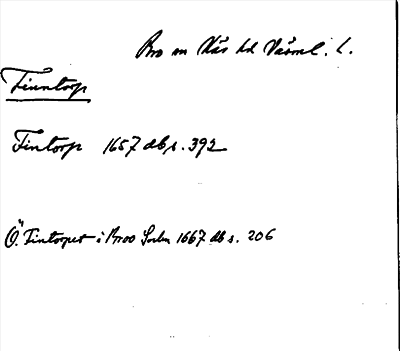 Bro sn Näs hd Värml. l.
Finntorp
Fintorp 1657 db s. 392
Ö. Fintorpet i Broo Sochn 1667 db s. 206